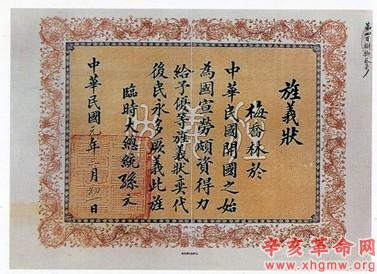 旌義狀
梅喬林於
中華民國開國之始
為國宣勞頗資得力
給予優等旌義狀奕代
後民永多厥義此旌
臨時大總統孫文
中華民國元年三月初一日
辛亥革命网
www.xhgmw.org